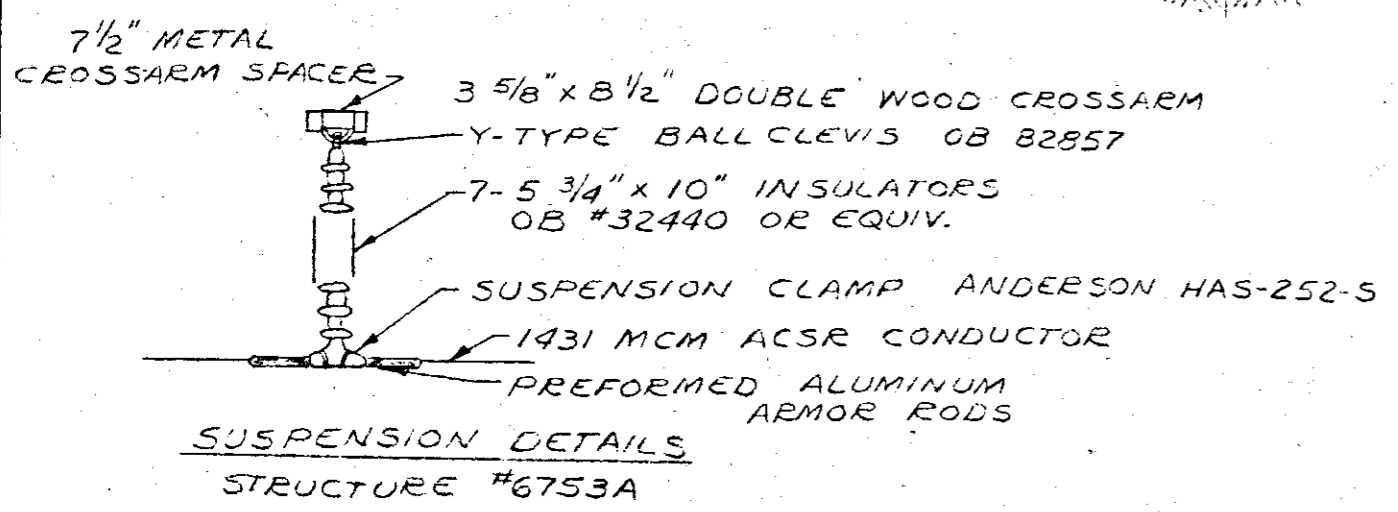 7 1/2" METAL
CROSSARM SPACER
3 5/8" x 8 1/2" DOUBLE WOOD CROSSARM
Y-TYPE BALL CLEVIS OB 82857
7- 5 3/4" x 10" INSULATORS
OB #32440 OR EQUIV.
SUSPENSION CLAMP ANDERSON HAS-252-S
1431 MCM ACSR CONDUCTOR
PREFORMED ALUMINUM
ARMOR RODS
SUSPENSION DETAILS
STRUCTURE #6753A